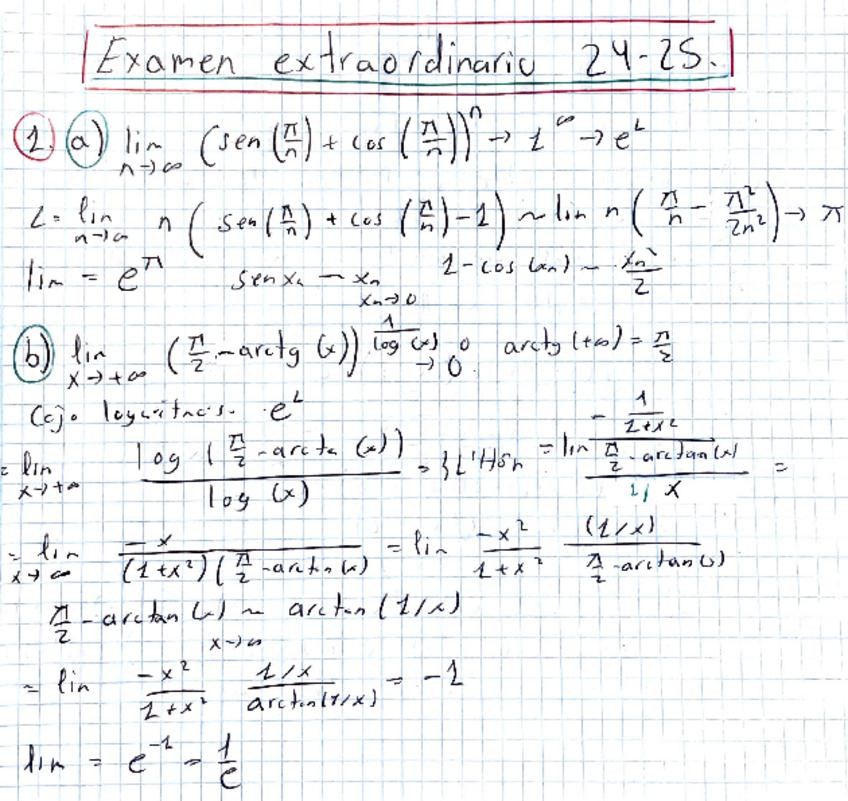 Examen extraordinario 24-25.
1. a) lim n→∞ (sen(π/n) + cos(π/n))^n → 1^∞ → e^L
L = lim n→∞ n (sen(π/n) + cos(π/n) - 1) ~ lim n (π/n - π²/2n²) → π
lim = e^π senxn ~ xn xn→0 1-cos(xn) ~ xn²/2
b) lim x→+∞ (π/2 - arctg(x))^(1/log(x)) → 0^0 arctg(+∞) = π/2
Cojo logaritmos. e^L
= lim x→+∞ log(π/2 - arctan(x)) / log(x) = {L'HSH = lim (-(1/(1+x²)) / (π/2 - arctan(x))) / (1/x) =
= lim x→∞ -x / ((1+x²)(π/2 - arctan(x))) = lim -x²/(1+x²) (1/x)/(π/2 - arctan(x))
π/2 - arctan(x) ~ arctan(1/x) x→∞
= lim -x²/(1+x²) (1/x)/arctan(1/x) = -1
lim = e^-1 = 1/e